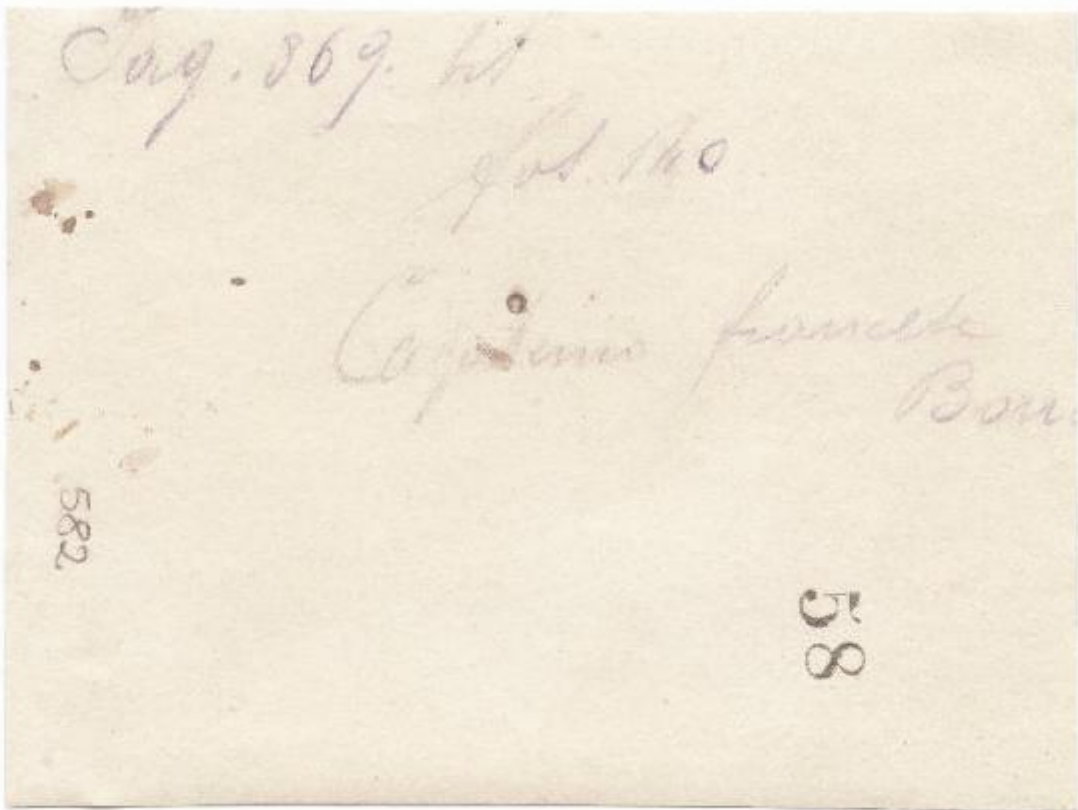 Pag. 869.
fot. 140
Capitano francese
582
58